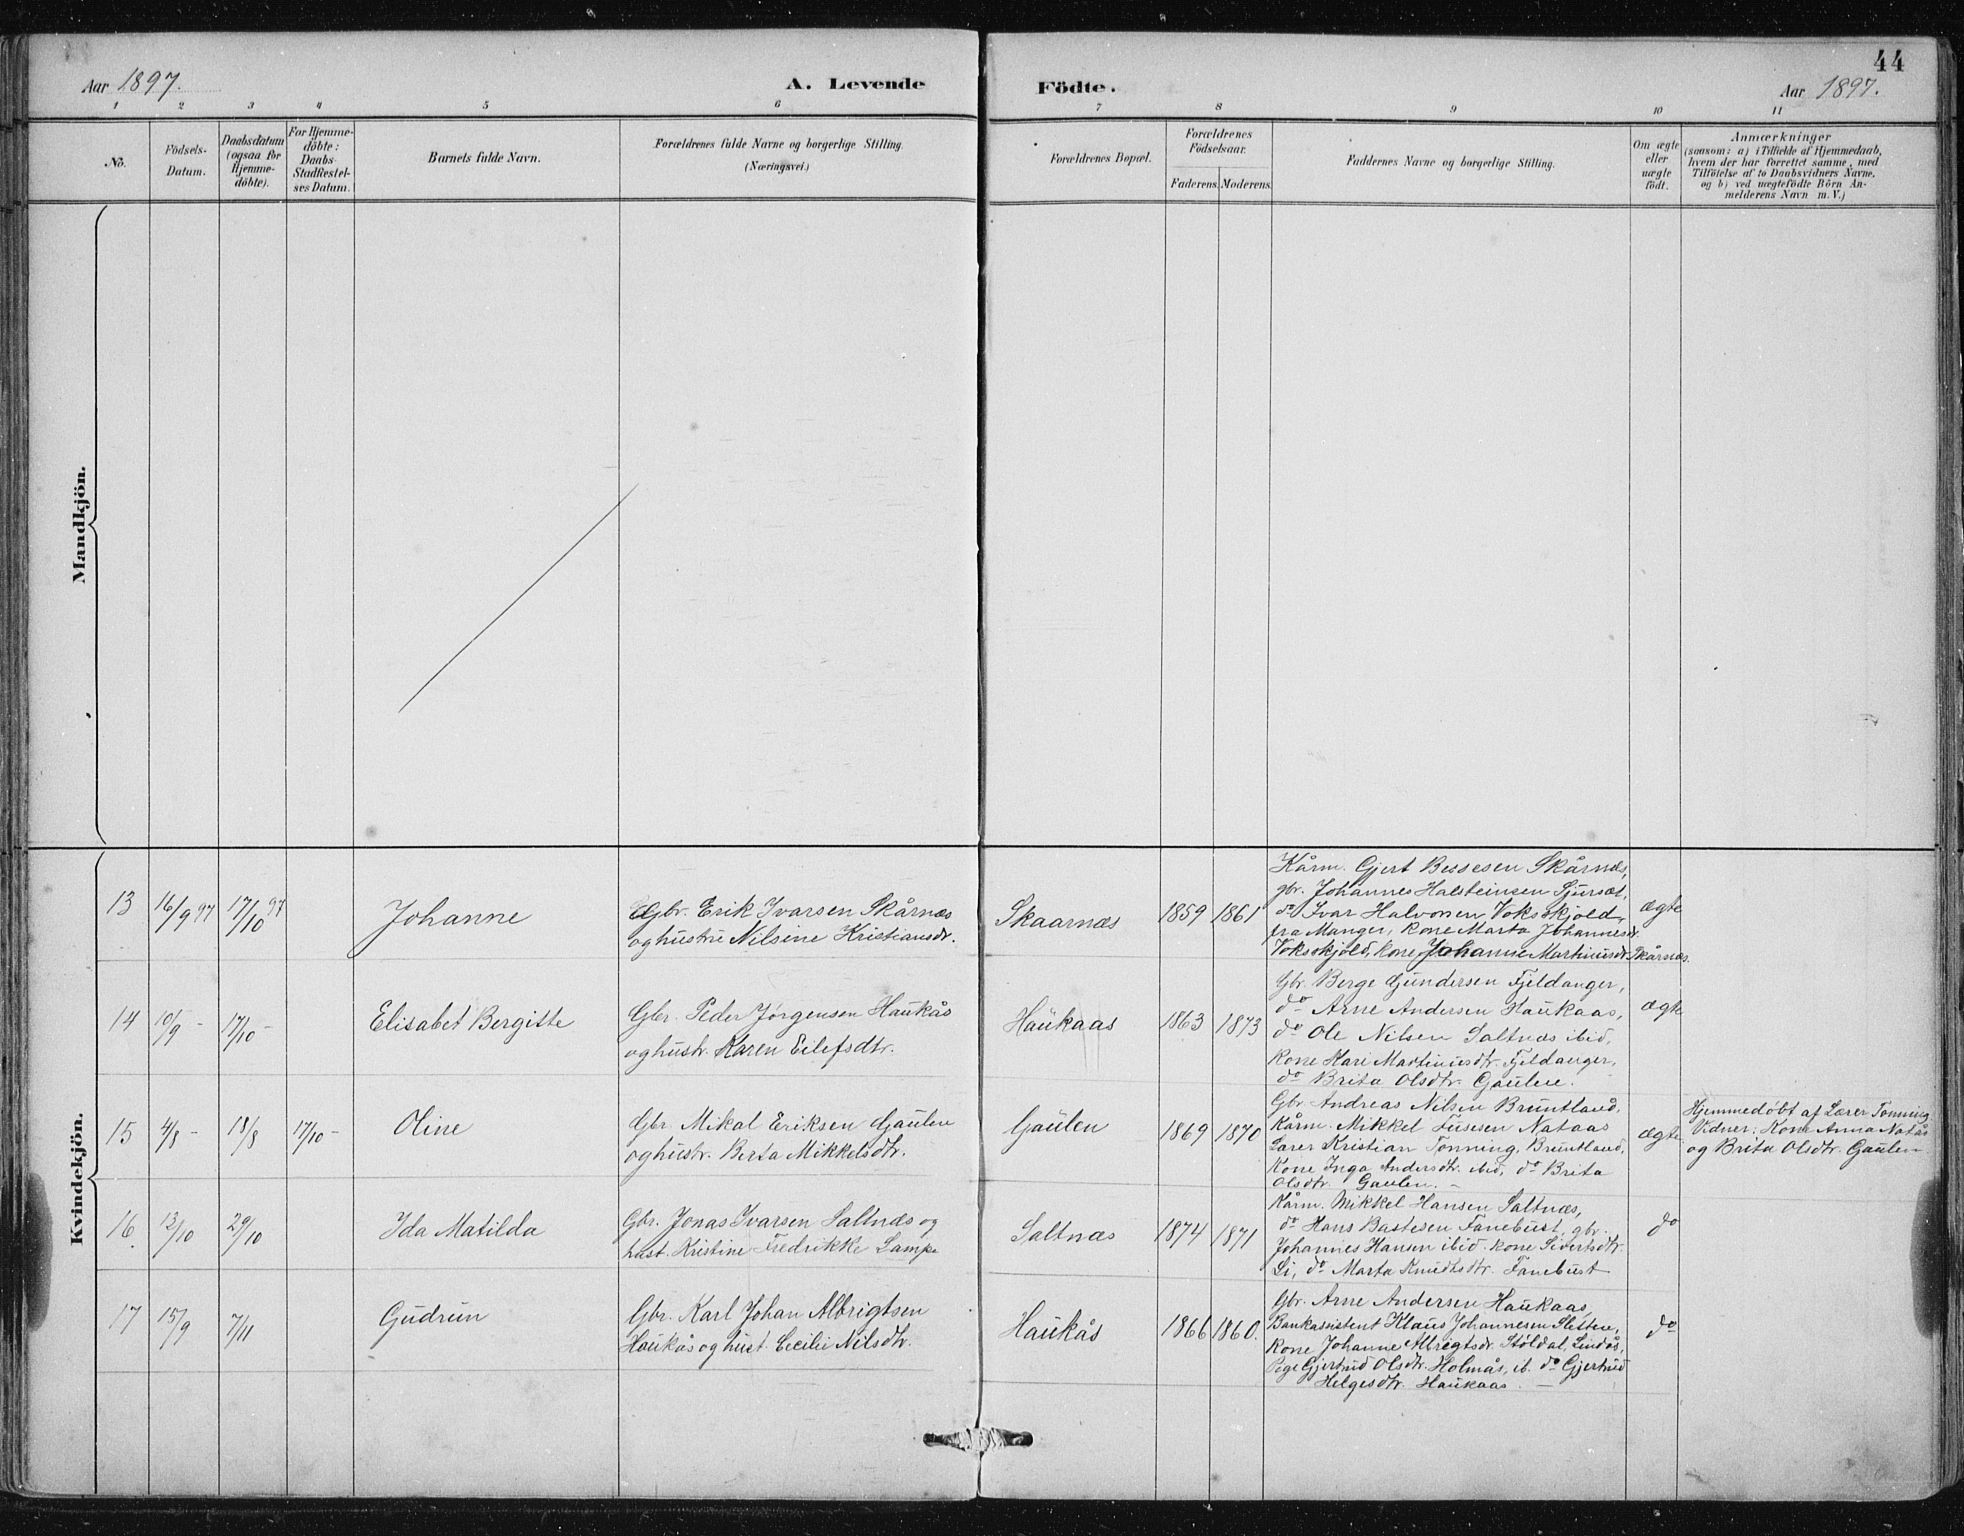 44
Aar 1897.
A. Levende Födte.
Aar 1897.
1 2 3 4 5 6 7 8 9 10 11
No.
Födsels-
Datum.
Daabsdatum
(ogsaa for
Hjemme-
döbte).
For Hjemme-
döbte:
Daabs-
Stadfæstel-
ses Datum.
Barnets fulde Navn.
Forældrenes fulde Navne og borgerlige Stilling.
(Næringsvei.)
Forældrenes Bopæl.
Forældrenes
Födselsaar.
Faderens. Moderens.
Faddernes Navne og borgerlige Stilling.
Om ægte
eller
uægte
födt.
Anmærkninger
(saasom: a) i Tilfælde af Hjemmedaab,
hvem der har forrettet samme, med
Tilföielse af to Daabsvidners Navne,
og b) ved uægtefödte Börn An-
melderens Navn m. V.)
Mandkjön.
Kvindekjön.
13 16/9 97 17/10 97
Johanne
Gbr. Erik Ivarsen Skårnæs
og hustru Nilsine Kristiansdr.
Skaarnæs
1859 1861
Kårm. Gjert Bessesen Skårnæs,
gbr. Johannes Halsteinsen Sjursæt,
do Ivar Halvorsen Voksskjold,
fra Manger, kone Marta Johannesdr.
Voksskjold, kone Johanne Martinusdr. Skårnæs.
ægte
14 10/9 - 17/10 -
Elisabet Bergitte
Gbr. Peder Jørgensen Haukås
og hustr. Karen Eilefsdtr.
Haukaas
1863 1873
Gbr. Berge Gundersen Fjeldanger,
do Arne Andersen Haukaas,
do Ole Nilsen Saltnæs ibid,
Kone Kari Martinusdtr. Fjeldanger,
do Brita Olsdtr. Gaulen.
ægte
15 4/8 - 18/8 17/10 -
Oline
Gbr. Mikal Eriksen Gaulen
og hustr. Berta Mikkelsdtr.
Gaulen
1869 1870
Gbr. Andreas Nilsen Bruntland,
Kårm. Mikkel Fusesen Nataas
Lærer Kristian Tonning, Bruntland,
Kone Inga Andersdtr. ibid, do Brita
Olsdtr. Gaulen. -
ægte
Hjemmedøbt af Lærer Tonning
Vidner: Kone Anna Natås
og Brita Olsdtr. Gaulen
16. 12/10 29/10
Ida Matilda
Gbr. Jonas Ivarsen Saltnæs og
hust. Kristine Fredrikke Lampe
Saltnæs
1874 1871
Kårm. Mikkel Hansen Saltnæs,
do Hans Bastesen Fanebust, gbr.
Johannes Hansen ibid. kone Sivertsdtr.
Li, do Marta Knudtsdtr. Fanebust
do
17 15/9 7/11
Gudrun
Gbr. Karl Johan Albrigtsen
Haukås og hust. Cecilie Nilsdtr.
Haukås
1866 1860.
Gbr. Arne Andersen Haukaas,
Bankassistent Klaus Johannesen Sletten,
Kone Johanne Albregtsdr. Stöldal, Lindås,
Pige Gjertrud Olsdtr. Holmås, ib. do Gjertrud
Helgesdtr. Haukaas. -
do